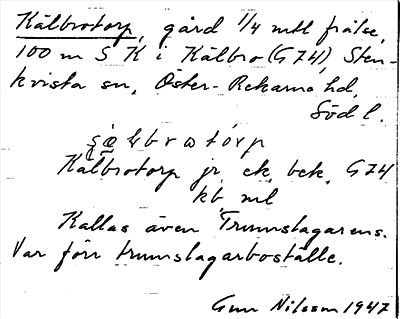 Kälbrotorp, gård 1/4 mtl frälse,
100 m S K i Kälbro (G 74), Sten-
kvista sn, Öster-Rekarne hd,
Södl.
Kälbrotorp jr, ek, bek, G 74
kb ml
Kallas även Trumslagarens.
Var förr trumslagarboställe.
Gun Nilsson 1947